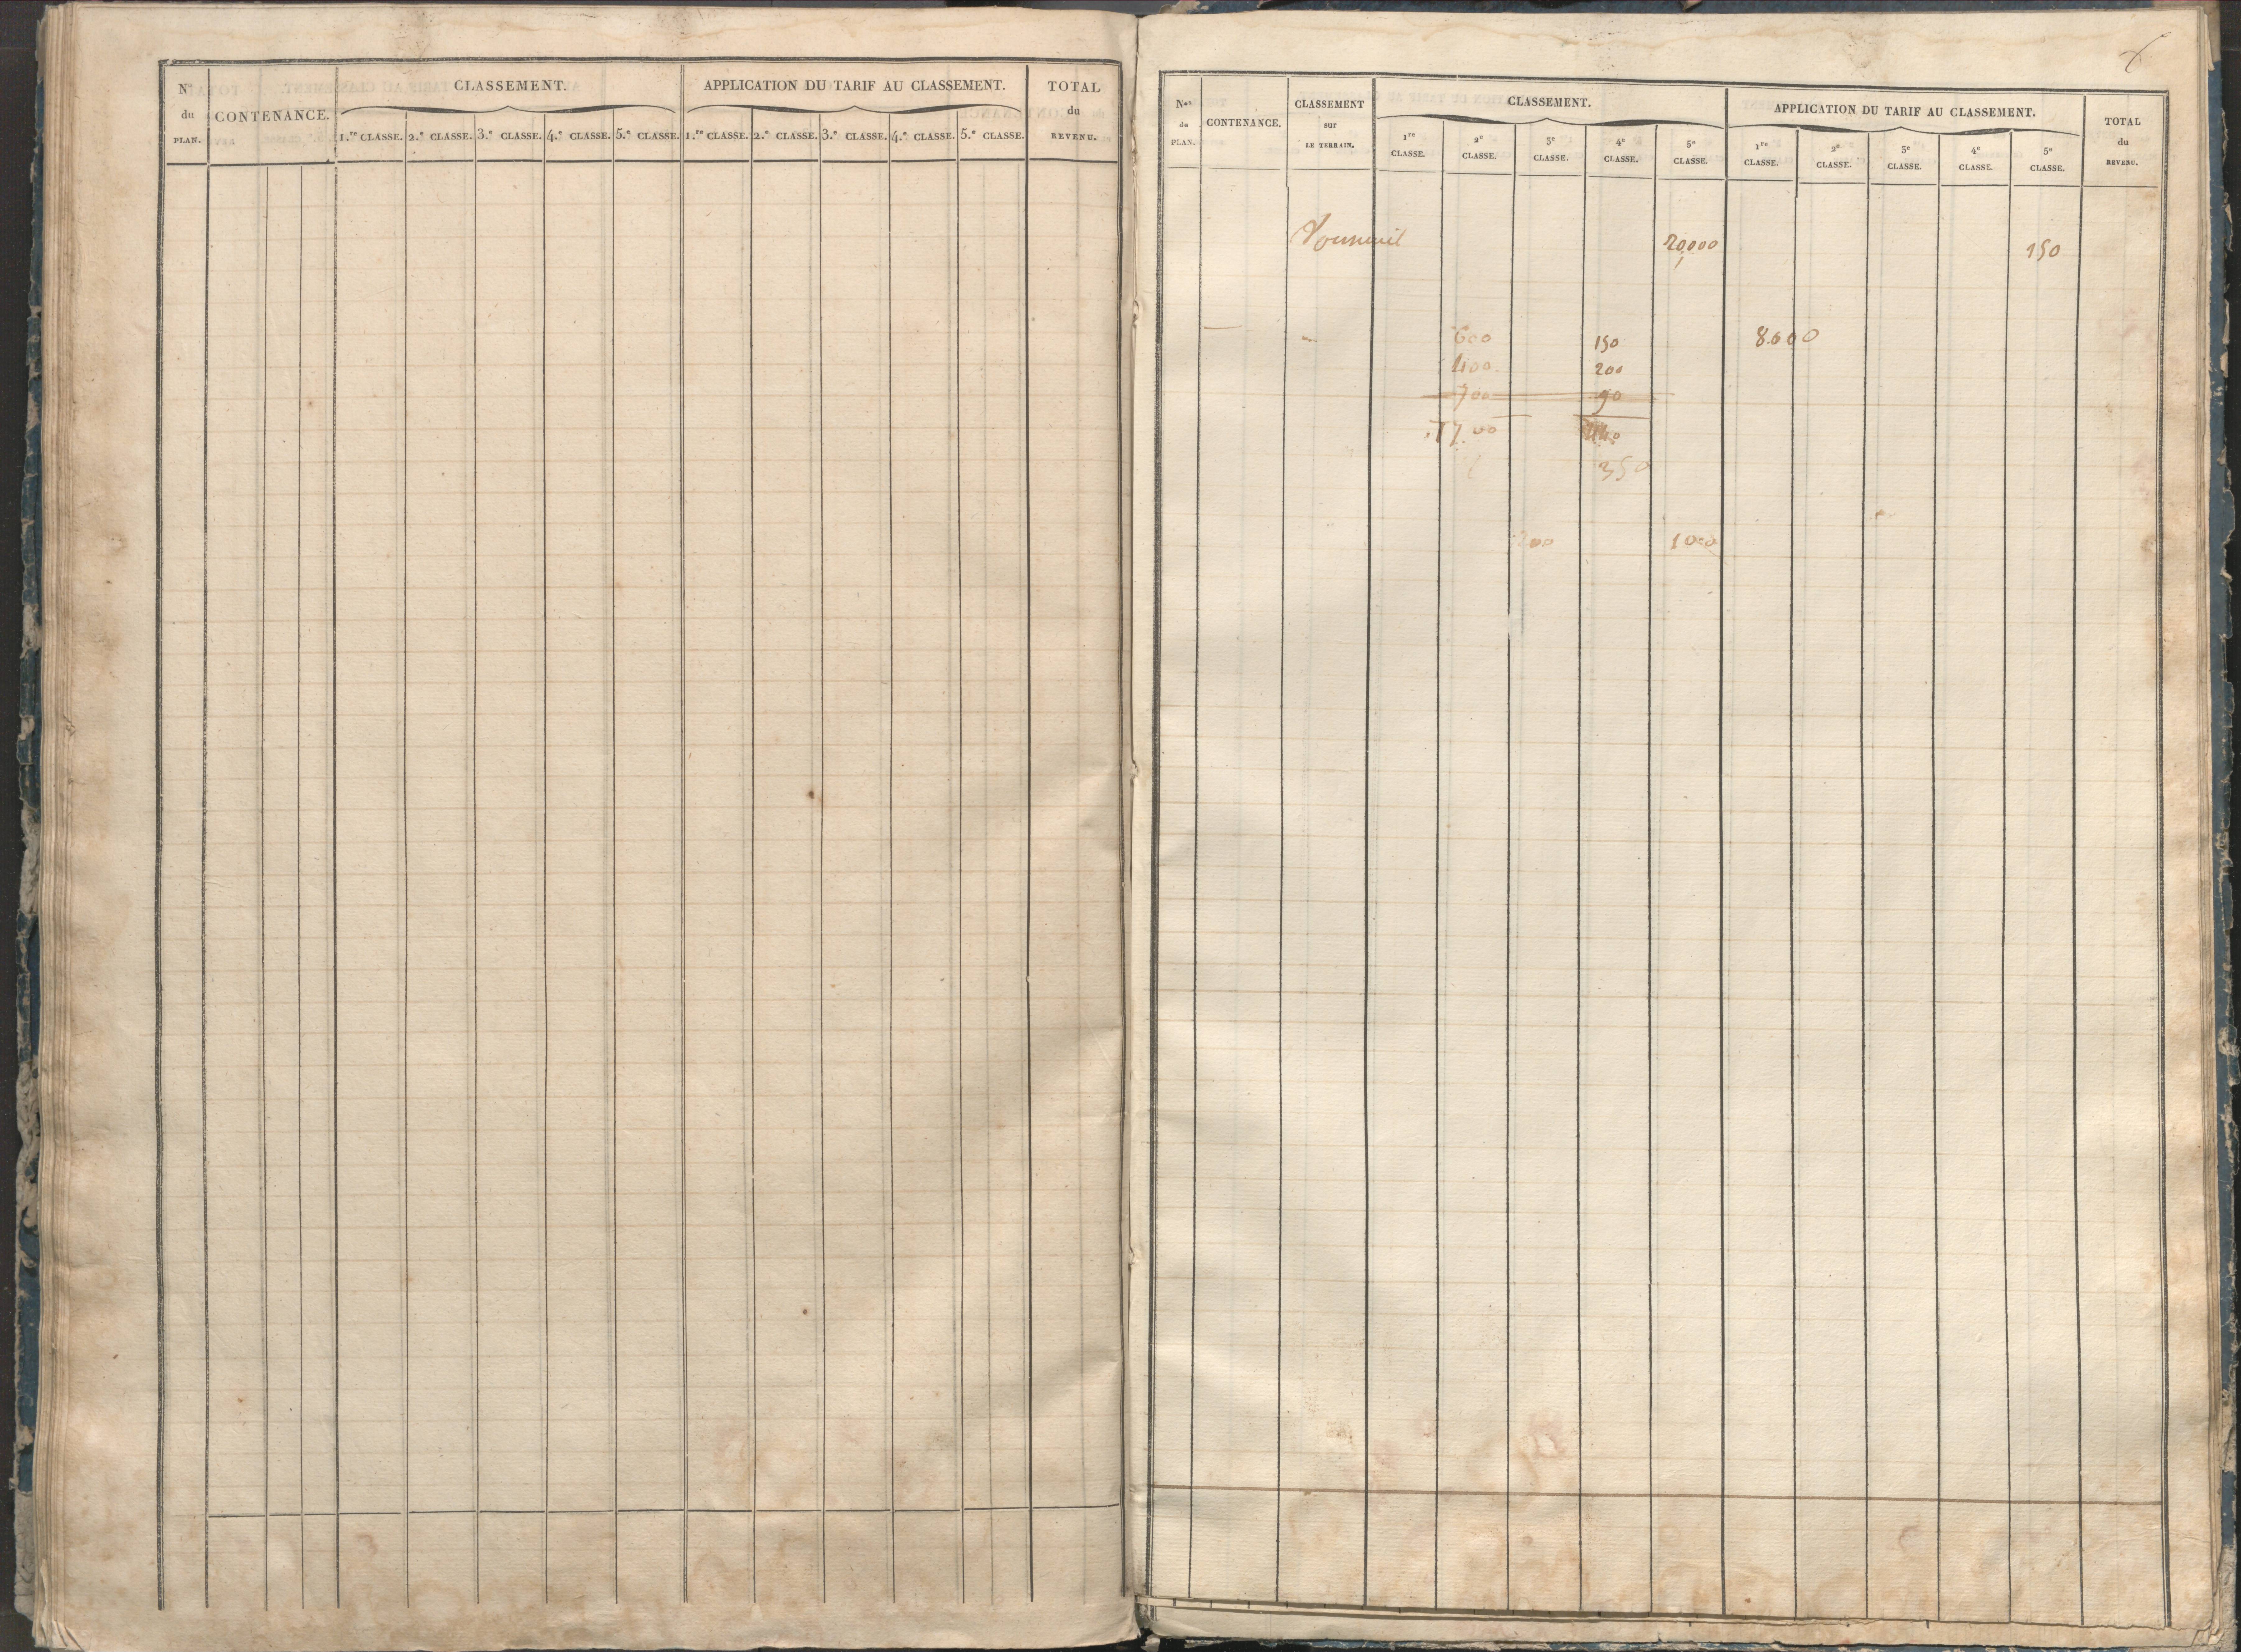 Nos du PLAN.
CONTENANCE.
CLASSEMENT.
1.re CLASSE. 2.e CLASSE. 3.e CLASSE. 4.e CLASSE. 5.e CLASSE.
APPLICATION DU TARIF AU CLASSEMENT.
1.re CLASSE. 2.e CLASSE. 3.e CLASSE. 4.e CLASSE. 5.e CLASSE.
TOTAL
du
REVENU.
Nos
du
PLAN.
CONTENANCE.
CLASSEMENT
sur
LE TERRAIN.
CLASSEMENT.
1re CLASSE. 2e CLASSE. 3e CLASSE. 4e CLASSE. 5e CLASSE.
APPLICATION DU TARIF AU CLASSEMENT.
1re CLASSE. 2e CLASSE. 3e CLASSE. 4e CLASSE. 5e CLASSE.
TOTAL
du
REVENU.
Vouneuil 20,000 150
600 150 8.000
400 200
700 90
17.00
350
1000